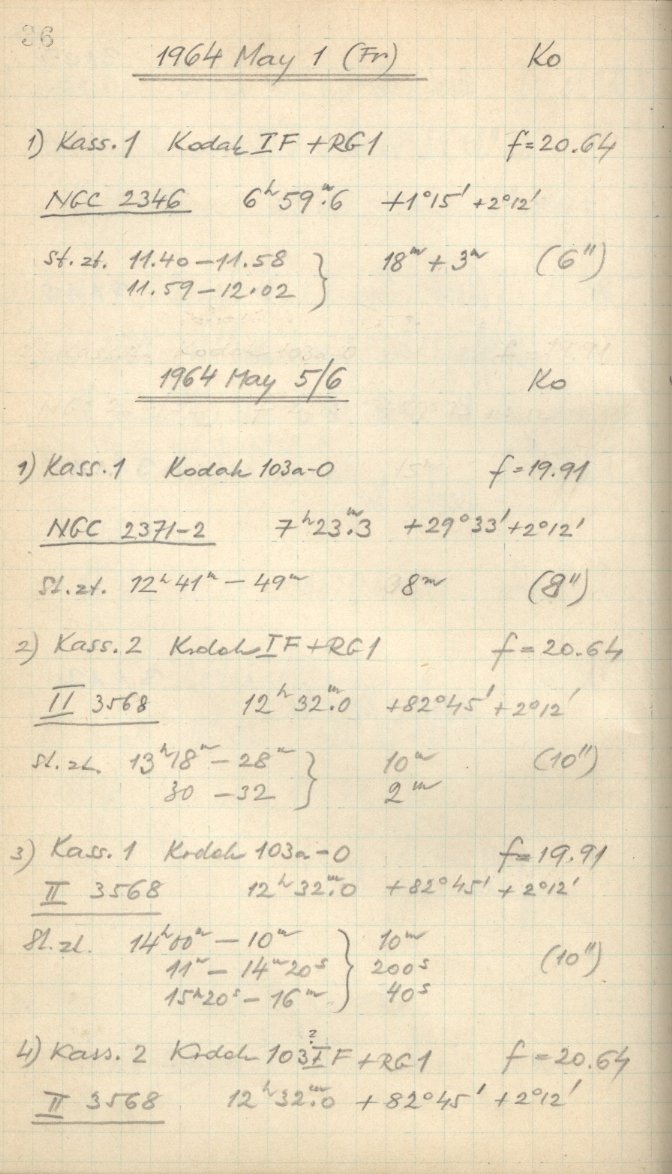 36
1964 May 1 (Fr) Ko
1) Kass. 1 Kodak I F + RG1 f = 20.64
NGC 2346 6ʰ59ᵐ.6 +1°15' +2°12'
St. zt. 11.40 – 11.58 } 18ᵐ + 3ᵐ (6")
11.59 – 12.02
1964 May 5/6 Ko
1) Kass. 1 Kodak 103a-O f = 19.91
NGC 2371-2 7ʰ23ᵐ.3 +29°33' +2°12'
St. zt. 12ʰ41ᵐ – 49ᵐ 8ᵐ (8")
2) Kass. 2 Kodak I F + RG1 f = 20.64
II 3568 12ʰ32ᵐ.0 +82°45' +2°12'
St. zt. 13ʰ18ᵐ – 28ᵐ } 10ᵐ (10")
30 – 32 2ᵐ
3) Kass. 1 Kodak 103a-O f = 19.91
II 3568 12ʰ32ᵐ.0 +82°45' +2°12'
St. zt. 14ʰ00ᵐ – 10ᵐ } 10ᵐ (10")
11ᵐ – 14ᵐ20ˢ 200ˢ
15ᵐ20ˢ – 16ᵐ 40ˢ
?
4) Kass. 2 Kodak 103 I F + RG1 f = 20.64
II 3568 12ʰ32ᵐ.0 +82°45' +2°12'